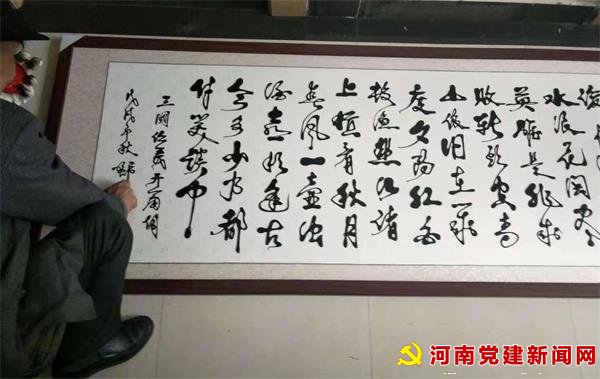 水浪花淘尽
英雄是非成
败转头空青
山依旧在几
度夕阳红白
发渔樵江渚
上惯看秋月
春风一壶浊
酒喜相逢古
今多少事都
付笑谈中
三国演义开篇词
戊戌年秋
河南党建新闻网